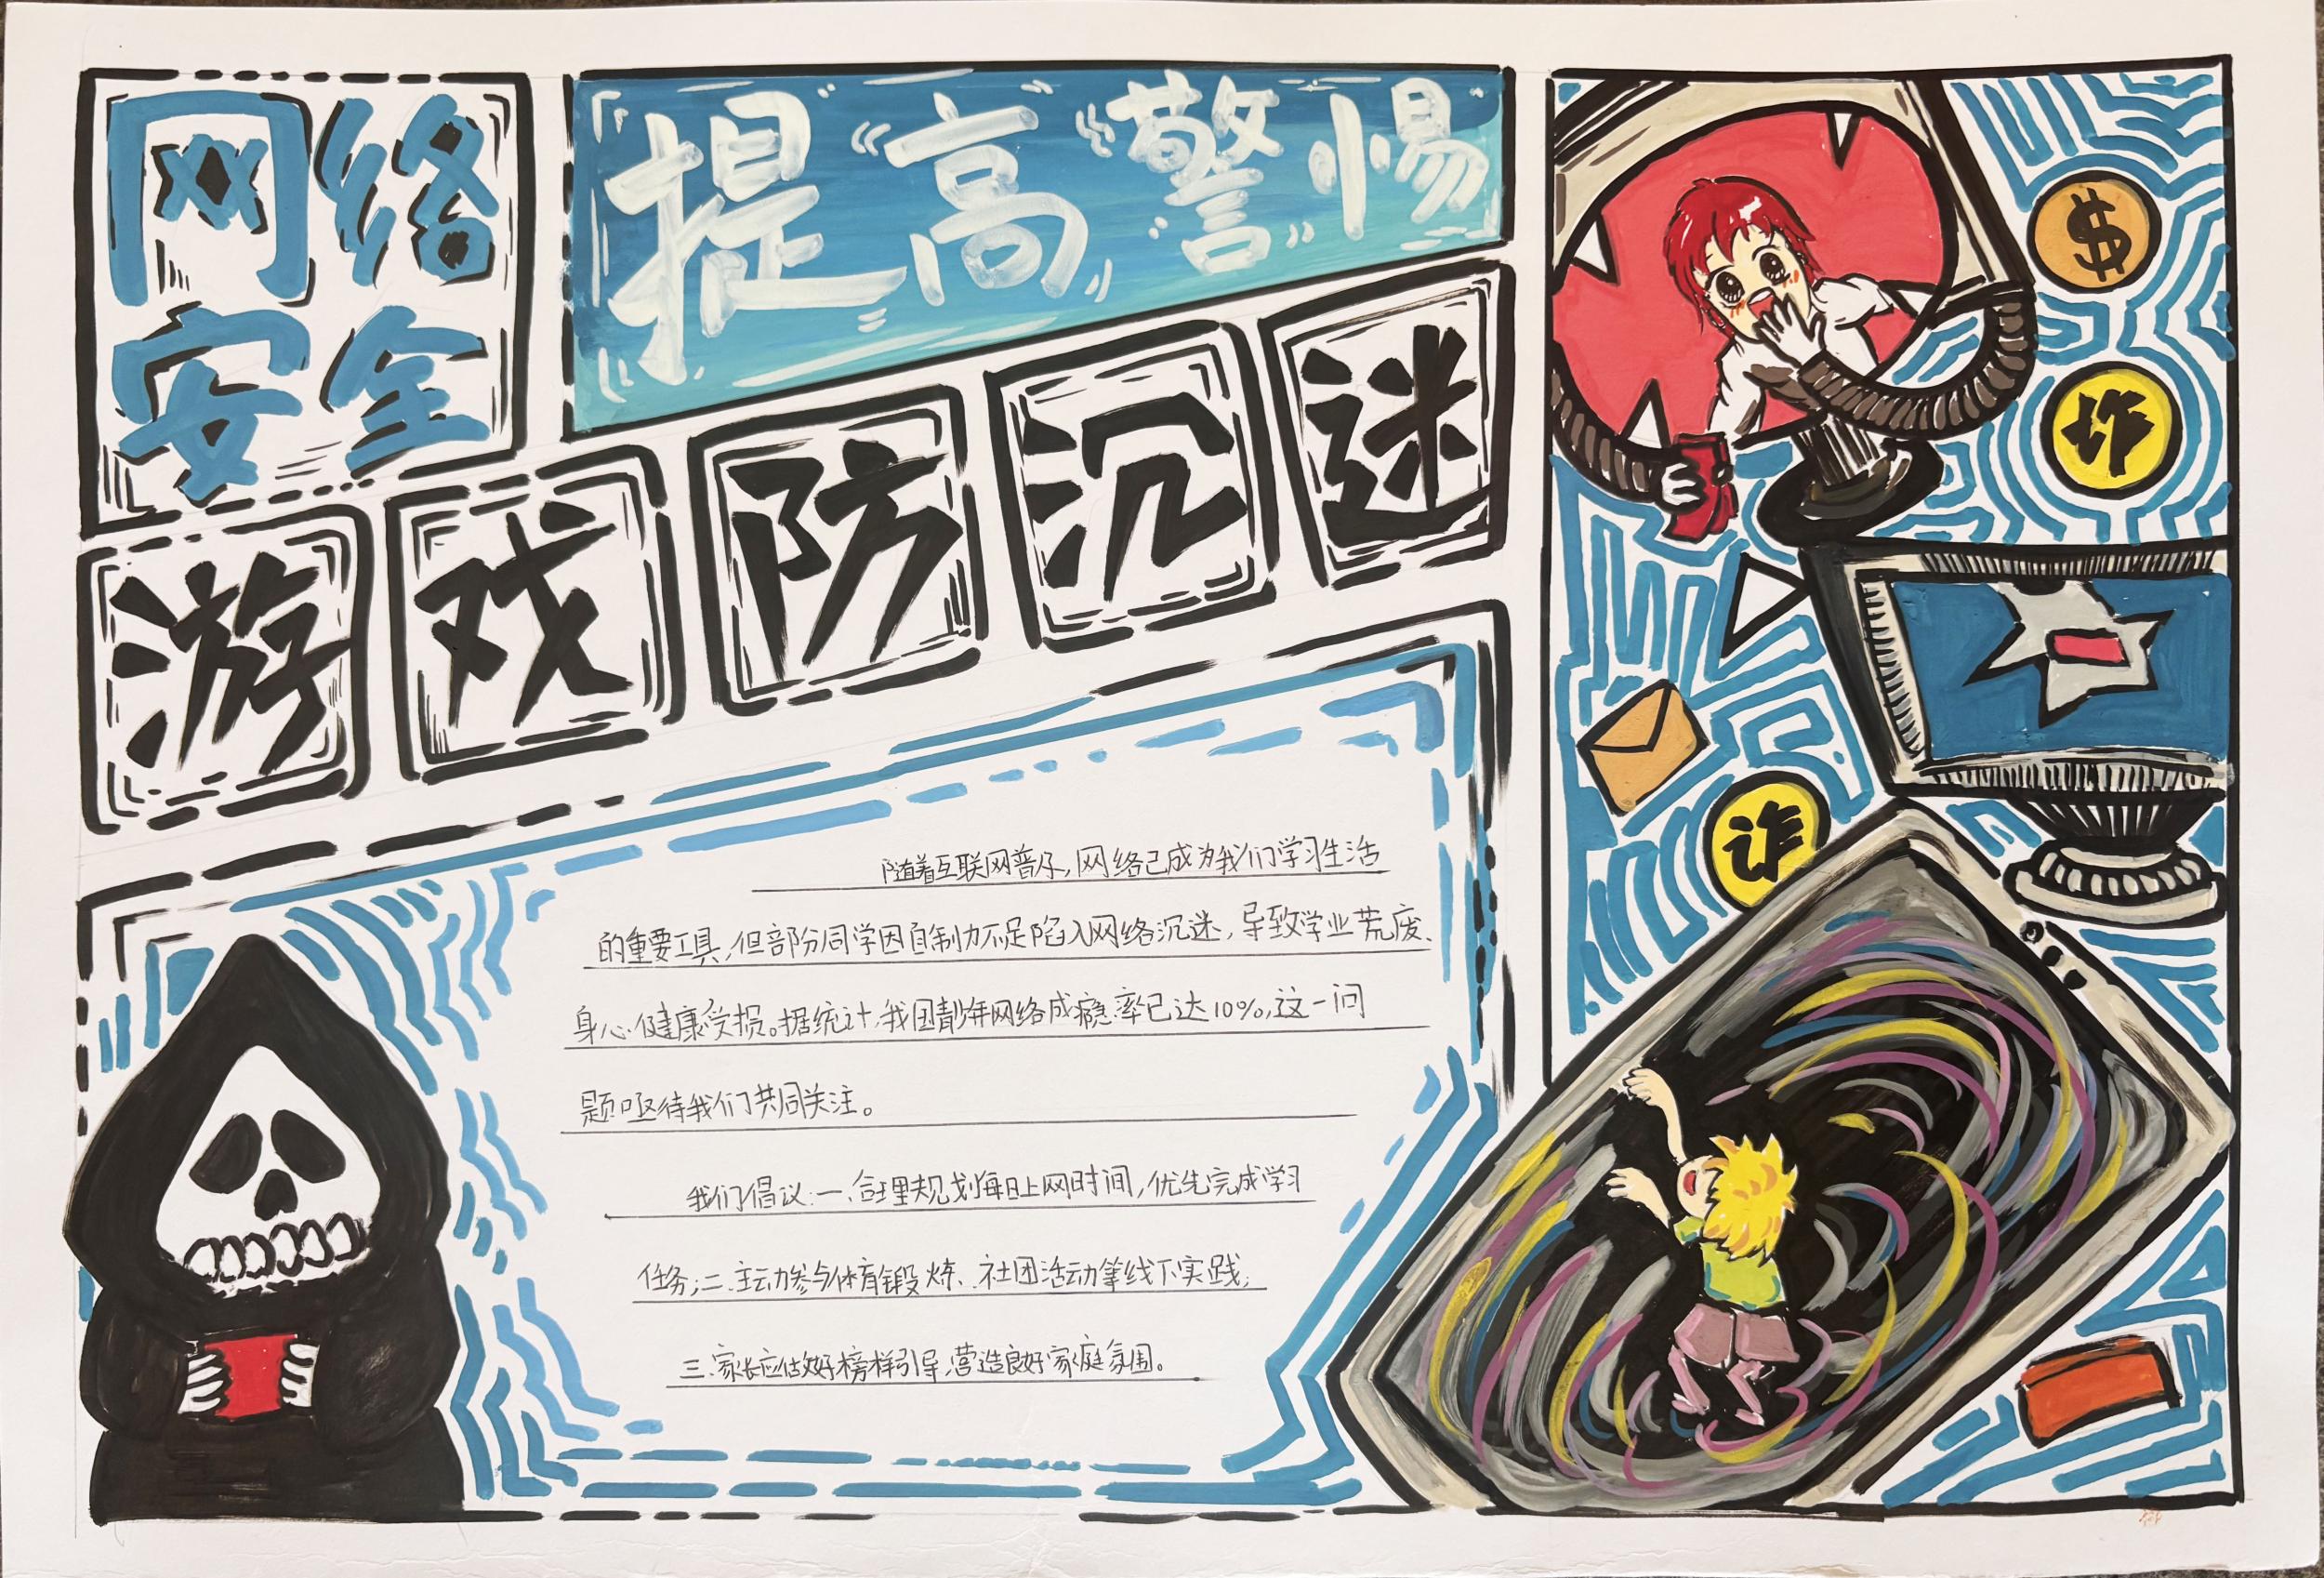 网络
安全
提高警惕
游戏防沉迷
$
诈
诈
随着互联网普及,网络已成为我们学习生活
的重要工具,但部分同学因自制力不足陷入网络沉迷,导致学业荒废、
身心健康受损。据统计,我国青少年网络成瘾率已达10%,这一问
题亟待我们共同关注。
我们倡议:一、合理规划每日上网时间,优先完成学习
任务;二、主动参与体育锻炼、社团活动等线下实践;
三、家长应做好榜样引导,营造良好家庭氛围。